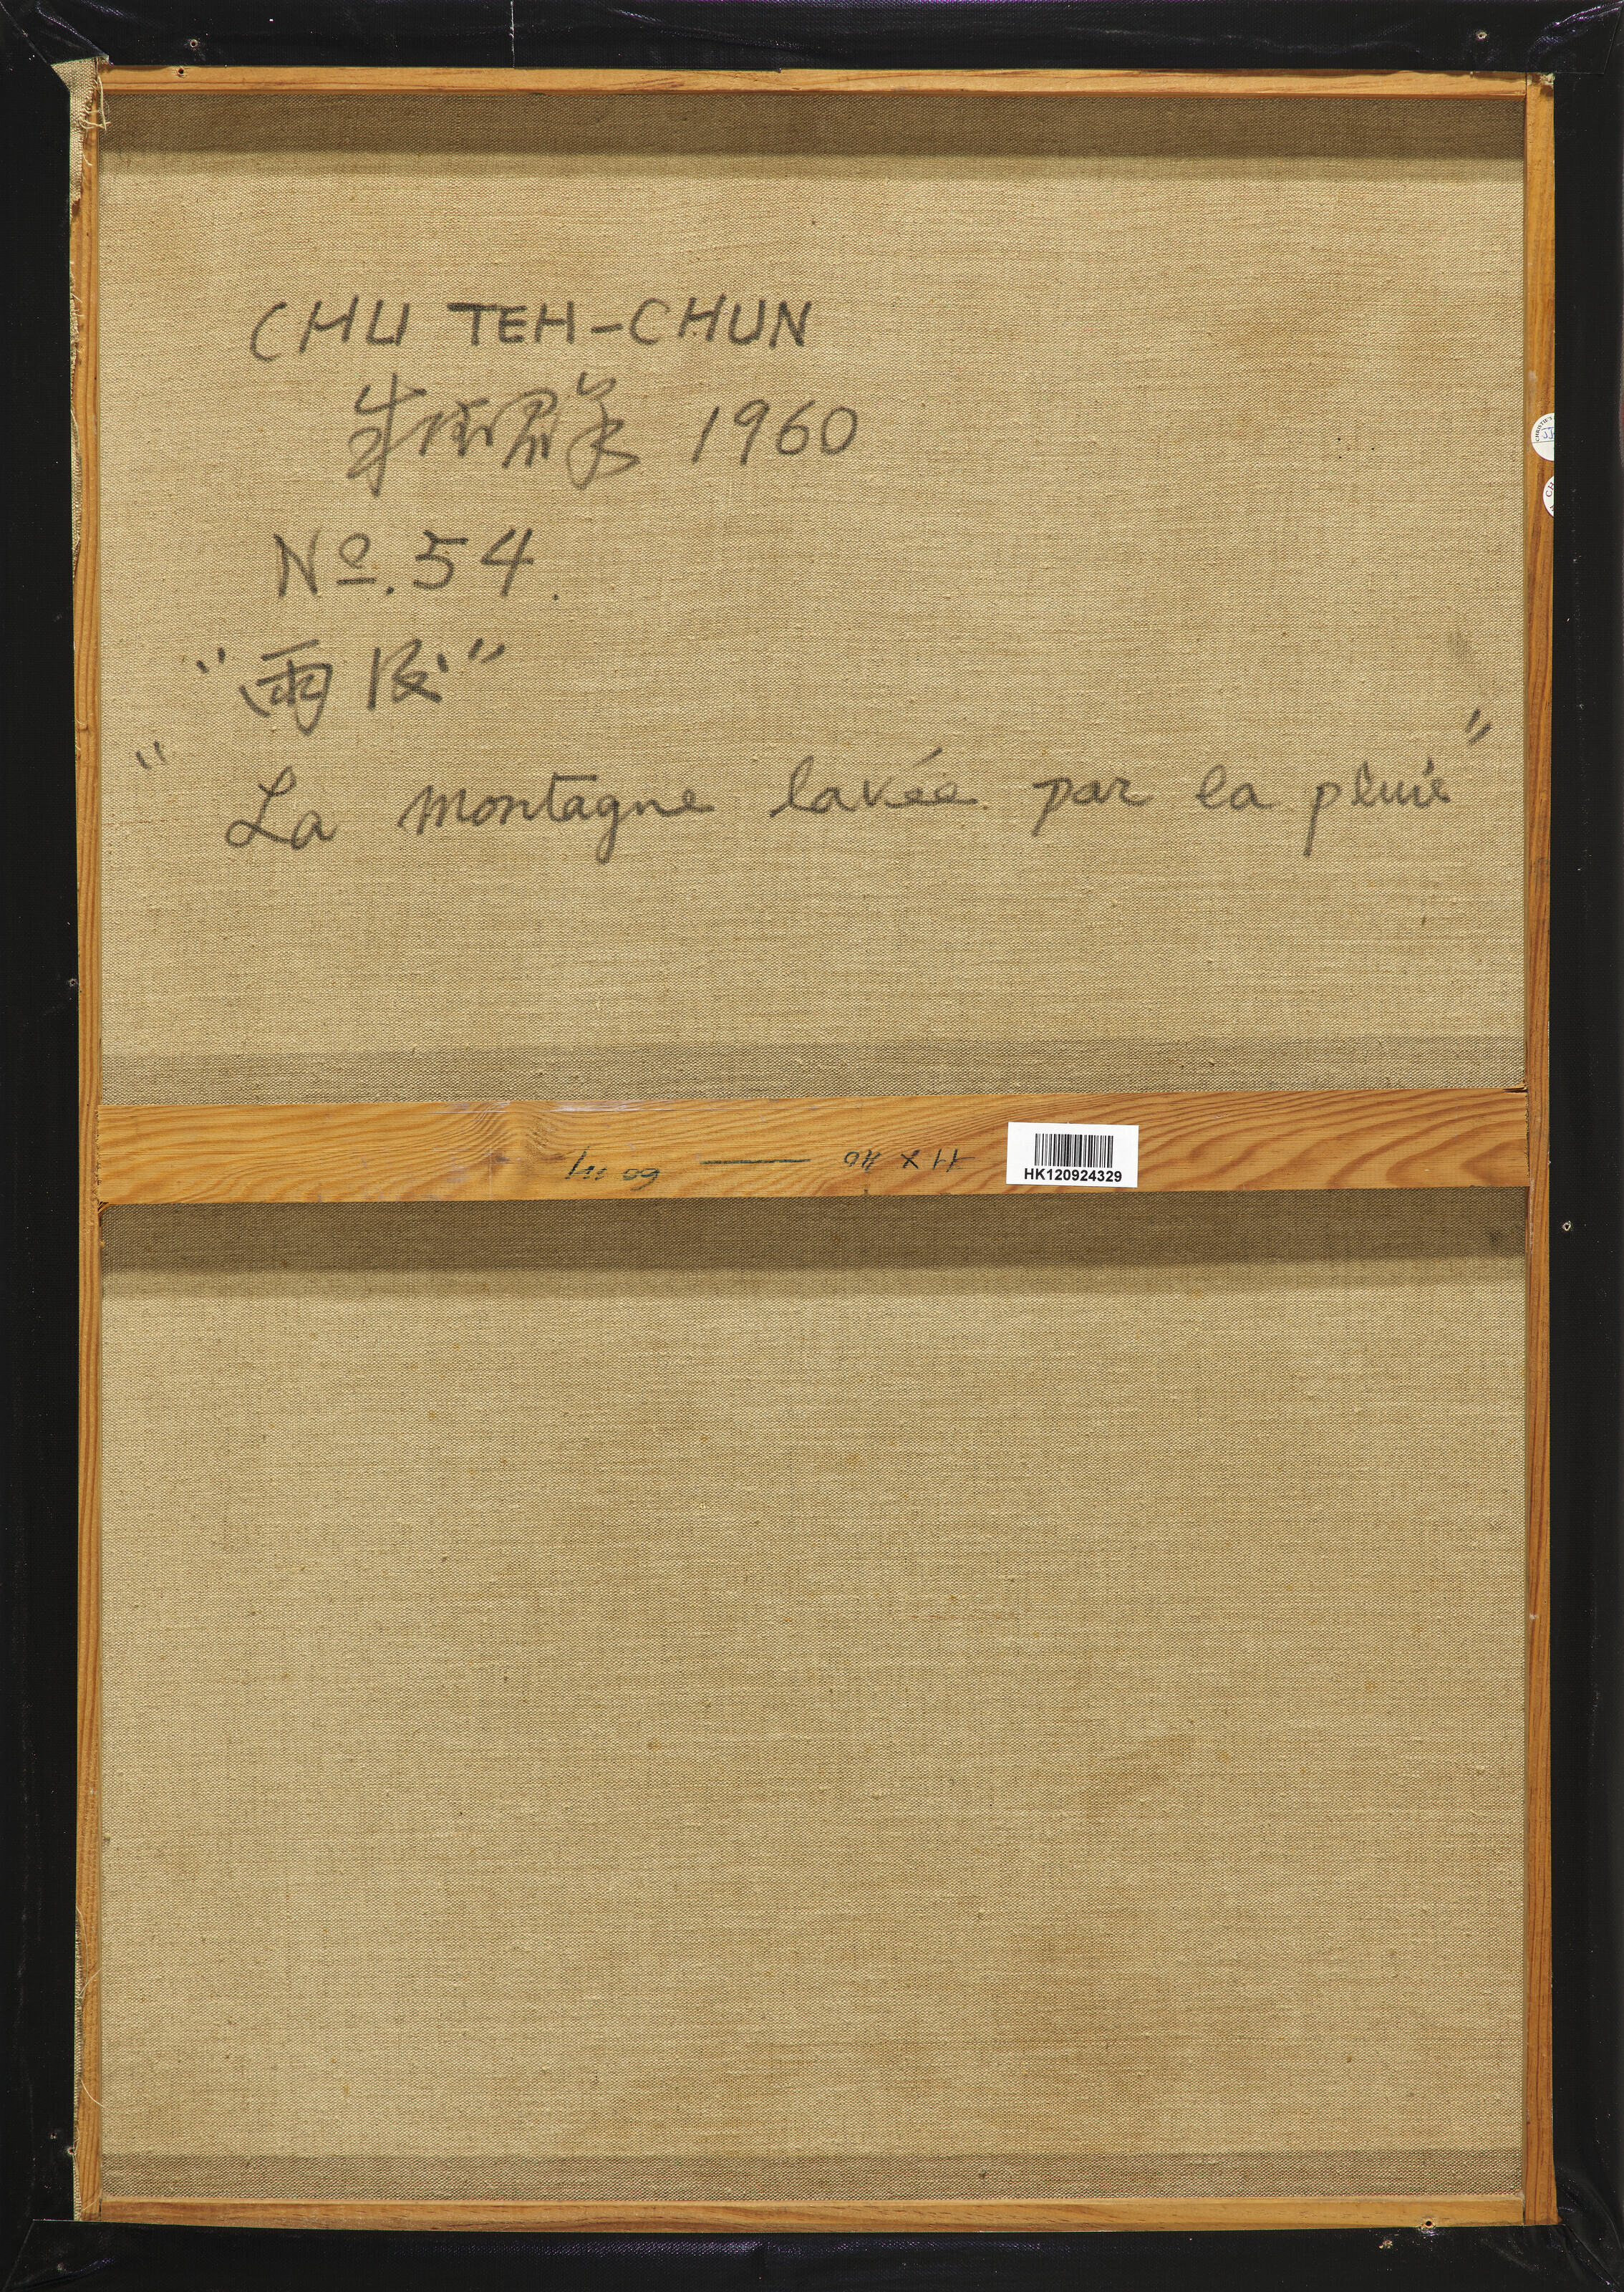 CHU TEH-CHUN
朱德群 1960
No. 54.
"雨後"
"La montagne lavée par la pluie"
HK120924329